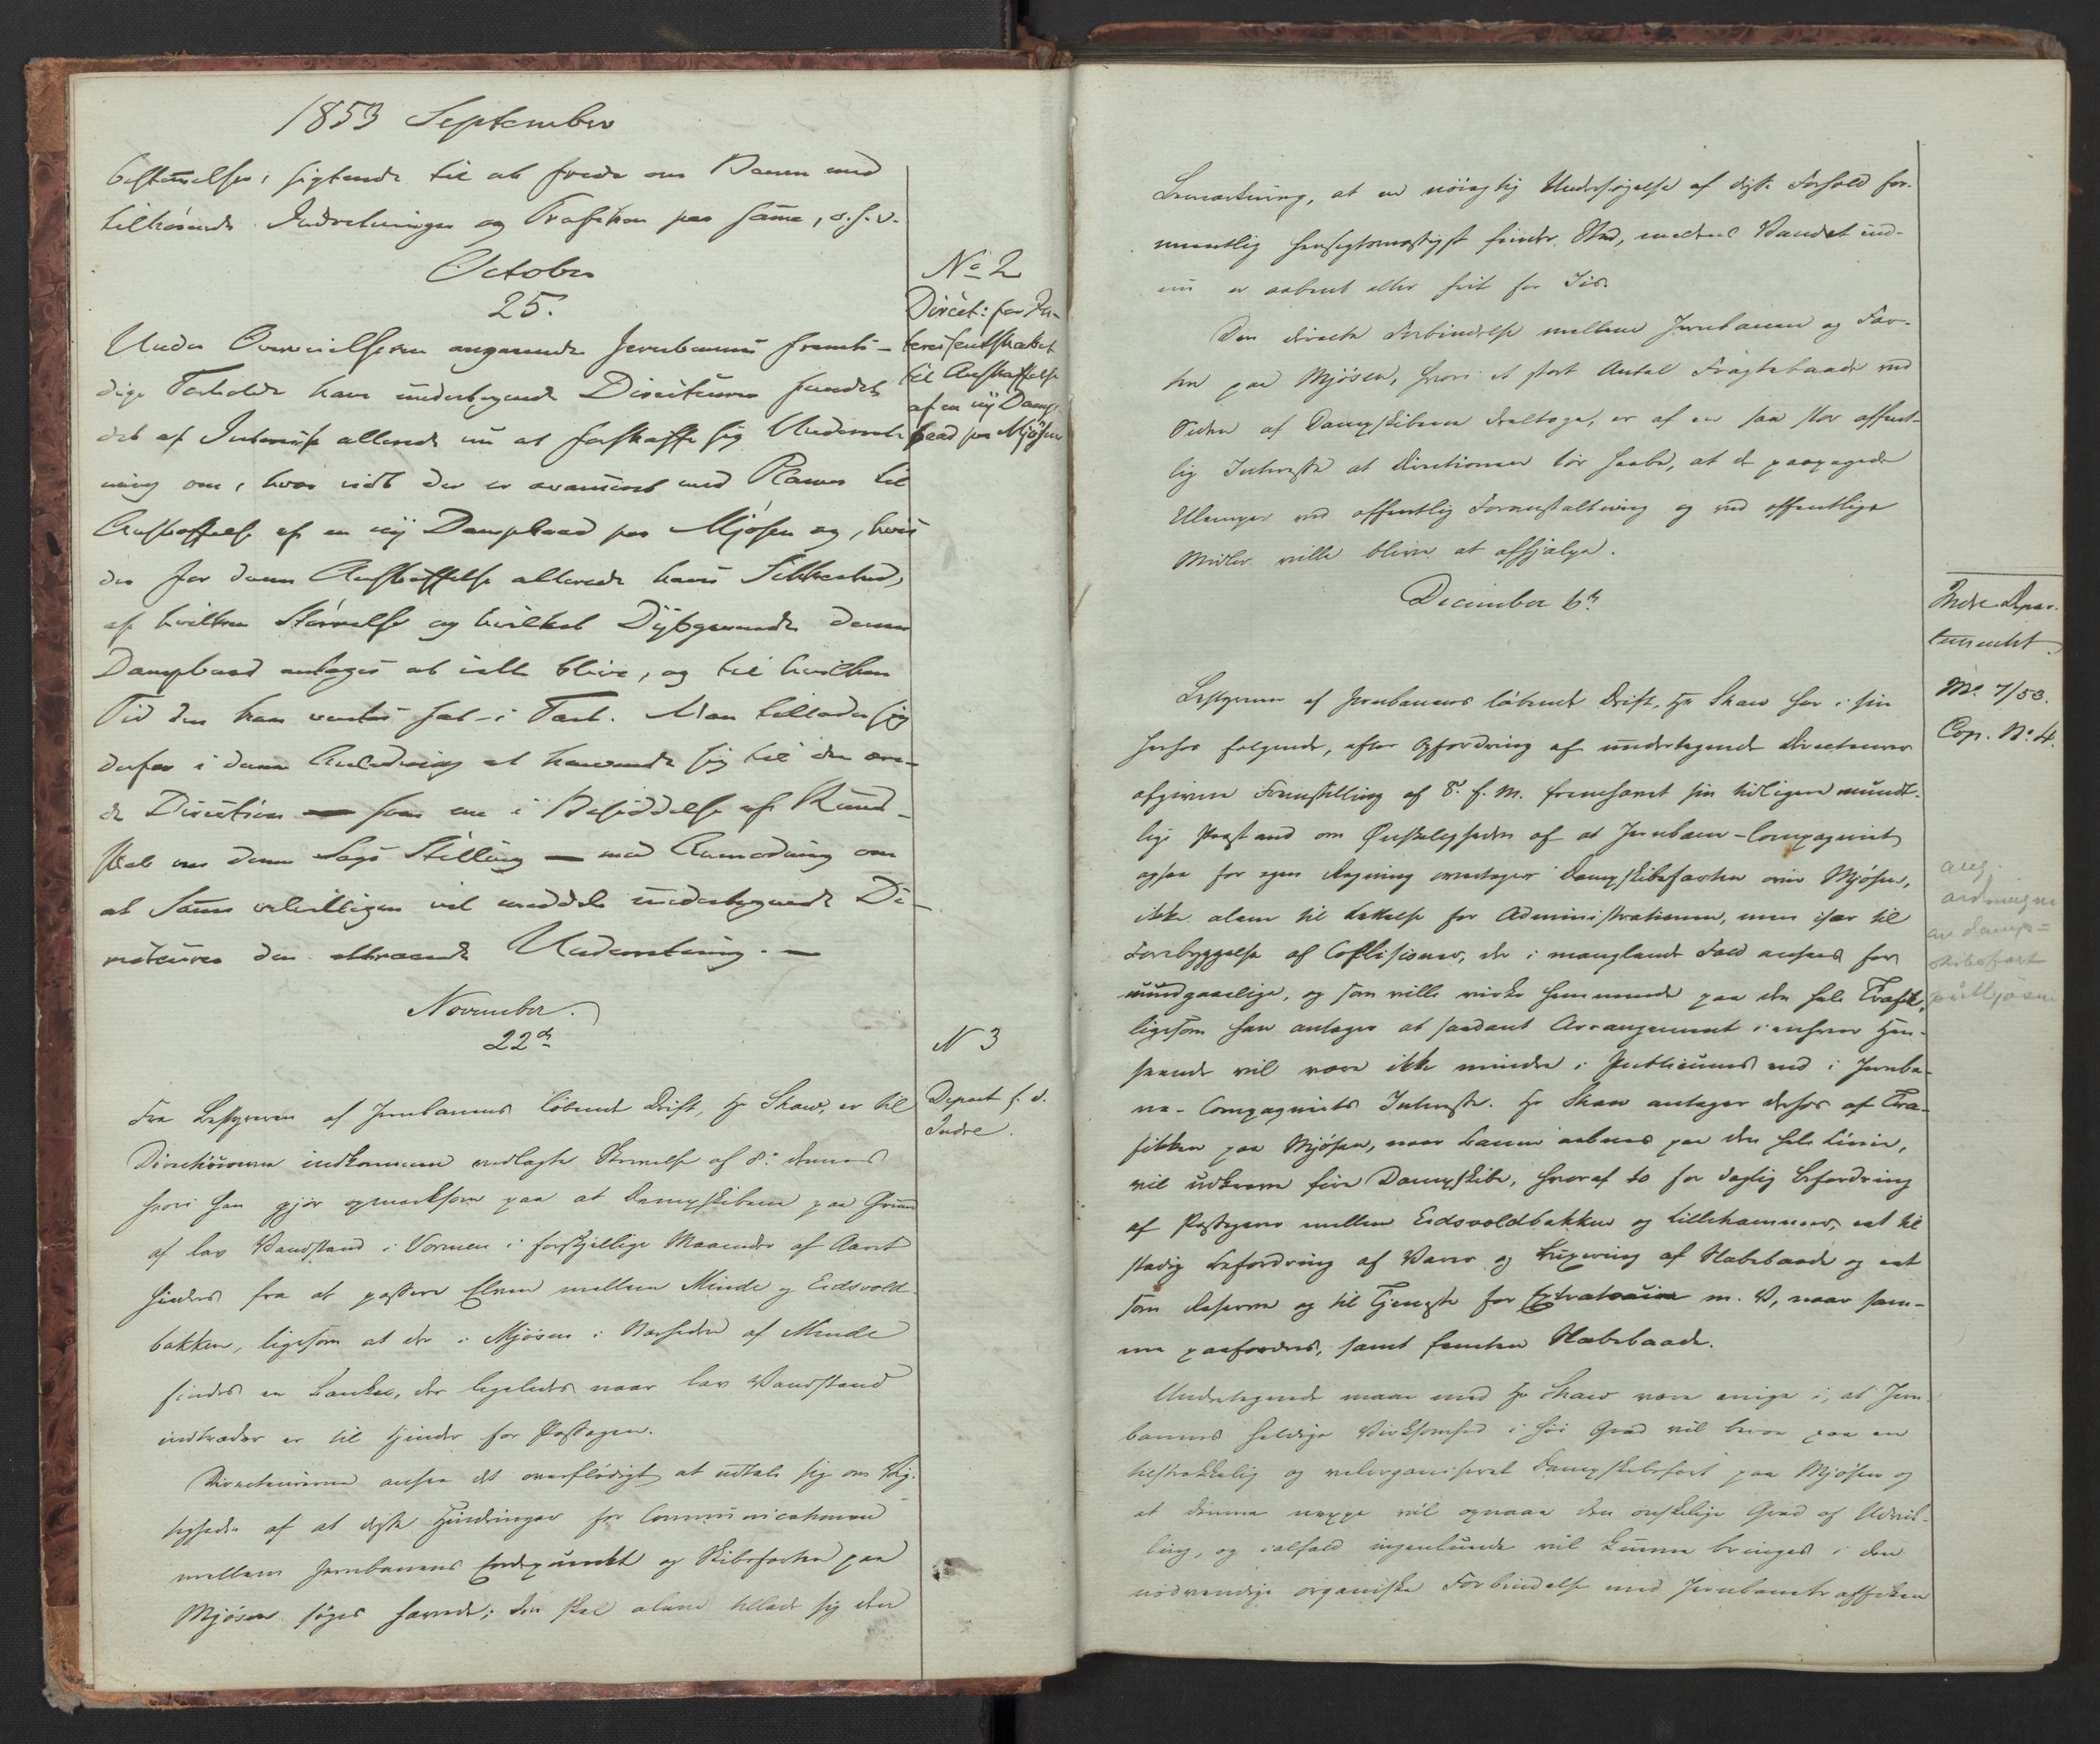 1853 September
bestemelser, sigtende til at frede om Banen med
tilhørende Indretninger og Trafiken paa same, o.s.v.
October
25.
No 2
Direct: for In-
teressentskabet
til Anskaffelse
af en ny Damp
baad paa Mjøsen
Under Overveielserne angaaende Jernbanens fremti-
dige Forholde have undertegnede Directeurer fundet
det af Interesse allerede nu at forskaffe sig Underret-
ning om, hvor vidt der er avanceret med Planen til
Anskaffelse af en ny Dampbaad paa Mjøsen og, hvis
der for denne Anskaffelse allerede haves Sikkerhed,
af hvilken Størrelse og hvilket Dybgaaende denne
Dampbaad antages at ville blive, og til hvilken
Tid den kan ventes sat i Fart. Man tillader sig
derfor i denne Anledning at henvende sig til den ære-
de Direction — som er i Besiddelse af Kund-
skab om denne Sags Stilling — med Anmodning om
at Samme velvilligen vil meddele undertegnede Di-
recteurer den attraaede Underretning. —
November.
22de
N 3
Depart f. d.
Indre.
Fra Bestyreren af Jernbanens løbende Drift, Hr Shaw, er til
Directeurerne indkommen vedlagte Skrivelse af 8de dennes
hvori han gjør opmærksom paa at Dampskibene paa Grund
af lav Vandstand i Vormen i forskjellige Maaneder af Aaret
hindres fra at passere Elven mellem Minde og Eidsvold-
bakken, ligesom at der i Mjøsen i Nærheden af Minde
findes en Banke, der ligeledes naar lav Vandstand
indtræder er til Hinder for Passagen.
Directeurerne ansee det overflødigt at udtale sig om Vig-
tigheden af at disse Hindringer for Communicationen
mellem Jernbanens Endepunkt og Skibsfarten paa
Mjøsen søges hævede; den skal alene tillade sig den
Bemærkning, at en nøiagtig Undersøgelse af disse Forhold for-
mentlig hensigtsmæssigst finder Sted, medens Vandet end-
nu er aabent eller frit for Iis.
Den directe Forbindelse mellem Jernbanen og Far-
ten paa Mjøsen, hvori et stort Antal Fragtebaade ved
Siden af Dampskibene deeltage, er af en saa stor offent-
lig Interesse at Directionen tør haabe, at de paapegede
Ulemper ved offentlig Foranstaltning og ved offentlige
Midler ville blive at afhjælpe.
December 6te
Indre Depar-
tementet.
No. 7/53.
Cop. No. 4.
Bestyreren af Jernbanens løbende Drift, Hr Shaw har i sin
herhos følgende, efter Opfordring af undertegnede Directeurer
afgivne Fremstilling af 8de f. M. fremhævet sin tidligere mundt-
lige Paastand om Ønskeligheden af at Jernbane-Compagniet
ogsaa for egen Regning overtager Dampskibsfarten over Mjøsen,
ikke alene til Lettelse for Administrationen, men især til
Forebyggelse af Collisioner, der i manglende Fald ansees for
uundgaaelige, og som ville virke hemmende paa den hele Trafik,
ligesom han antager at saadant Arrangement i enhver Hen-
seende vil være ikke mindre i Publicums end i Jernba-
ne-Compagniets Interesse. Hr Shaw antager derhos at Tra-
fikken paa Mjøsen, naar Banen aabnes paa den hele Linie,
vil udkræve fire Dampskibe, hvoraf to for daglig Befordring
af Passagerer mellem Eidsvoldbakken og Lillehammer, eet til
stadig Befordring af Varer og Bugsering af Slæbebaade og eet
som Reserve og til Tjeneste for Extratouren m. V, naar sam-
me paafordres, samt femten Slæbebaade.
ang.
ordningen
av damp-
skibsfart
på Mjøsen
Undertegnede maae med Hr Shaw være enige i, at Jern-
banens heldige Virksomhed i høi Grad vil beroe paa en
tilstrækkelig og velorganiseret Dampskibsfart paa Mjøsen og
at denne neppe vil opnaae den ønskelige Grad af Udvik-
ling, og ialfald ingenlunde vil kunne bringes i den
nødvendige organiske Forbindelse med Jernbanetrafikken